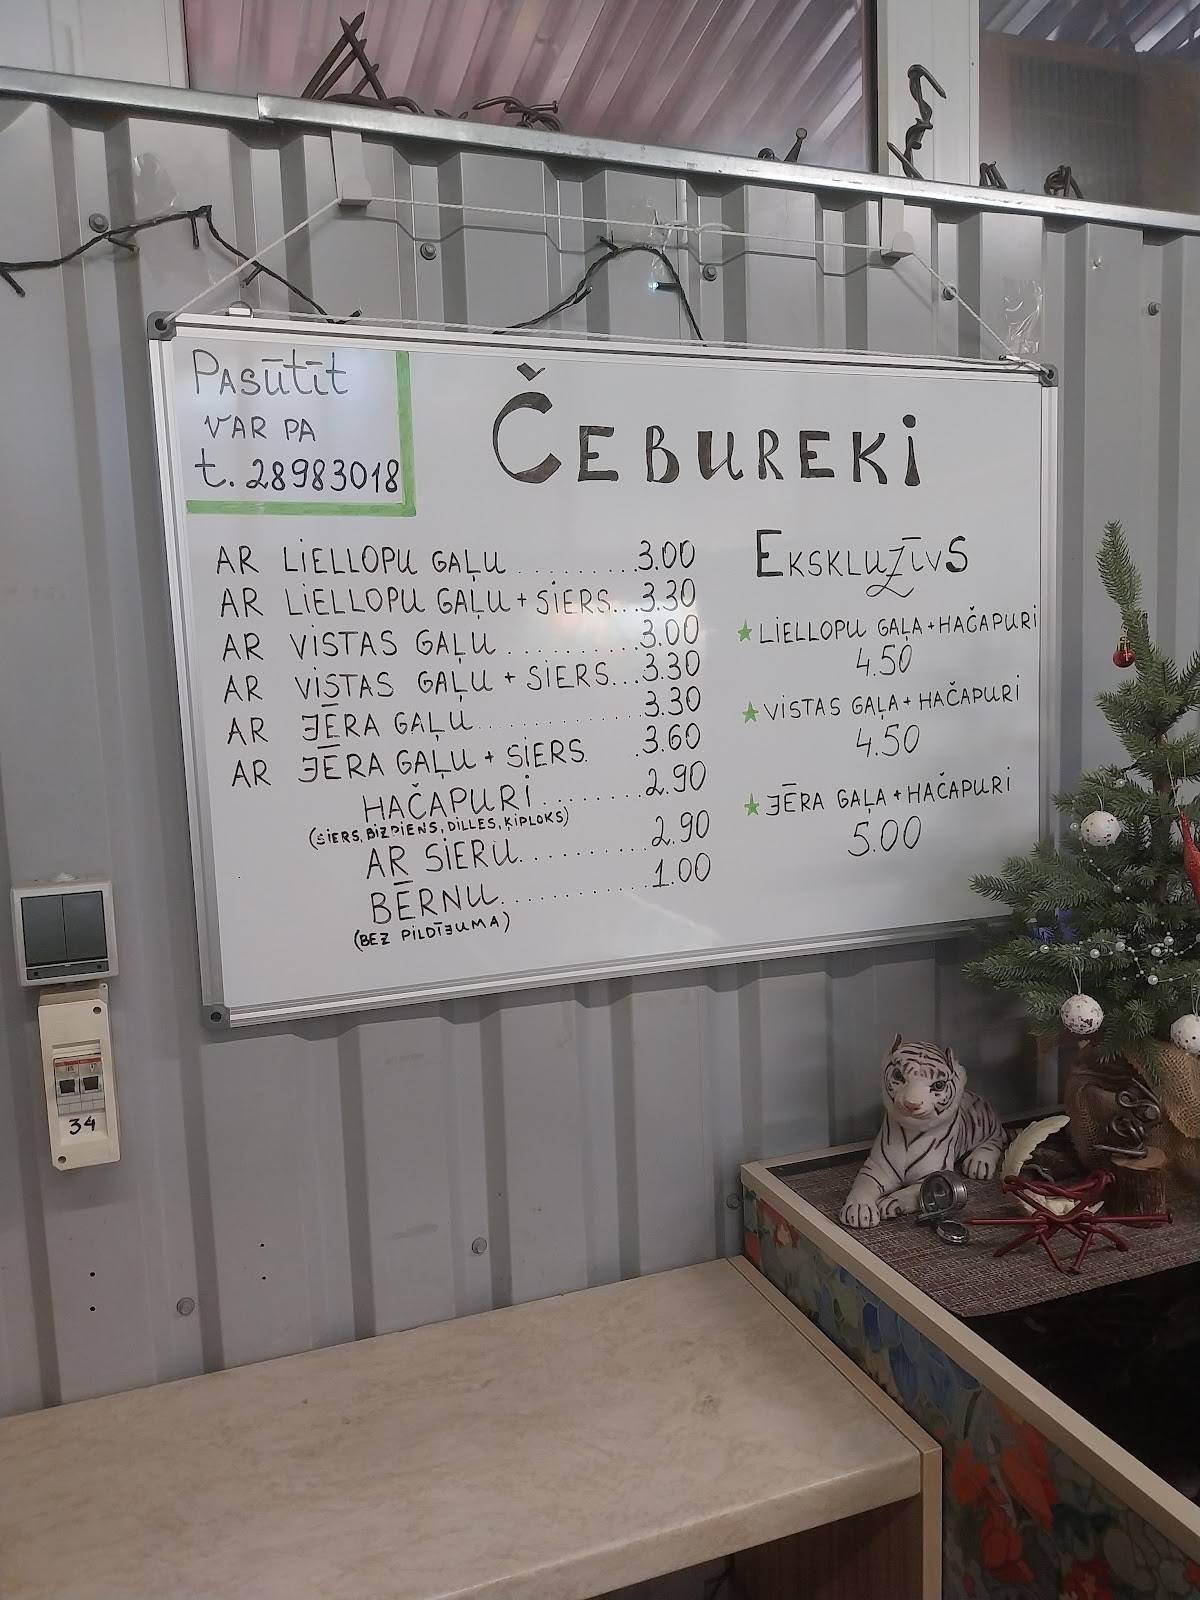 Pasūtīt
var pa
t. 28983018
ČEBUREKi
AR LiELLOPU GAĻU..........3.00
AR LiELLOPU GAĻU + SiERS...3.30
AR ViSTAS GAĻU..........3.00
AR ViSTAS GAĻU + SiERS...3.30
AR JĒRA GAĻU............3.30
AR JĒRA GAĻU + SiERS. .3.60
HAČAPURi........2.90
(SiERS, BiZPiENS, DiLLES, ĶiPLOKS)
AR SiERU..........2.90
BĒRNU...........1.00
(BEZ PiLDĪJUMA)
EKSKLUZĪVS
★ LiELLOPU GAĻA + HAČAPURi
4.50
★ ViSTAS GAĻA + HAČAPURi
4.50
★ JĒRA GAĻA + HAČAPURi
5.00
34